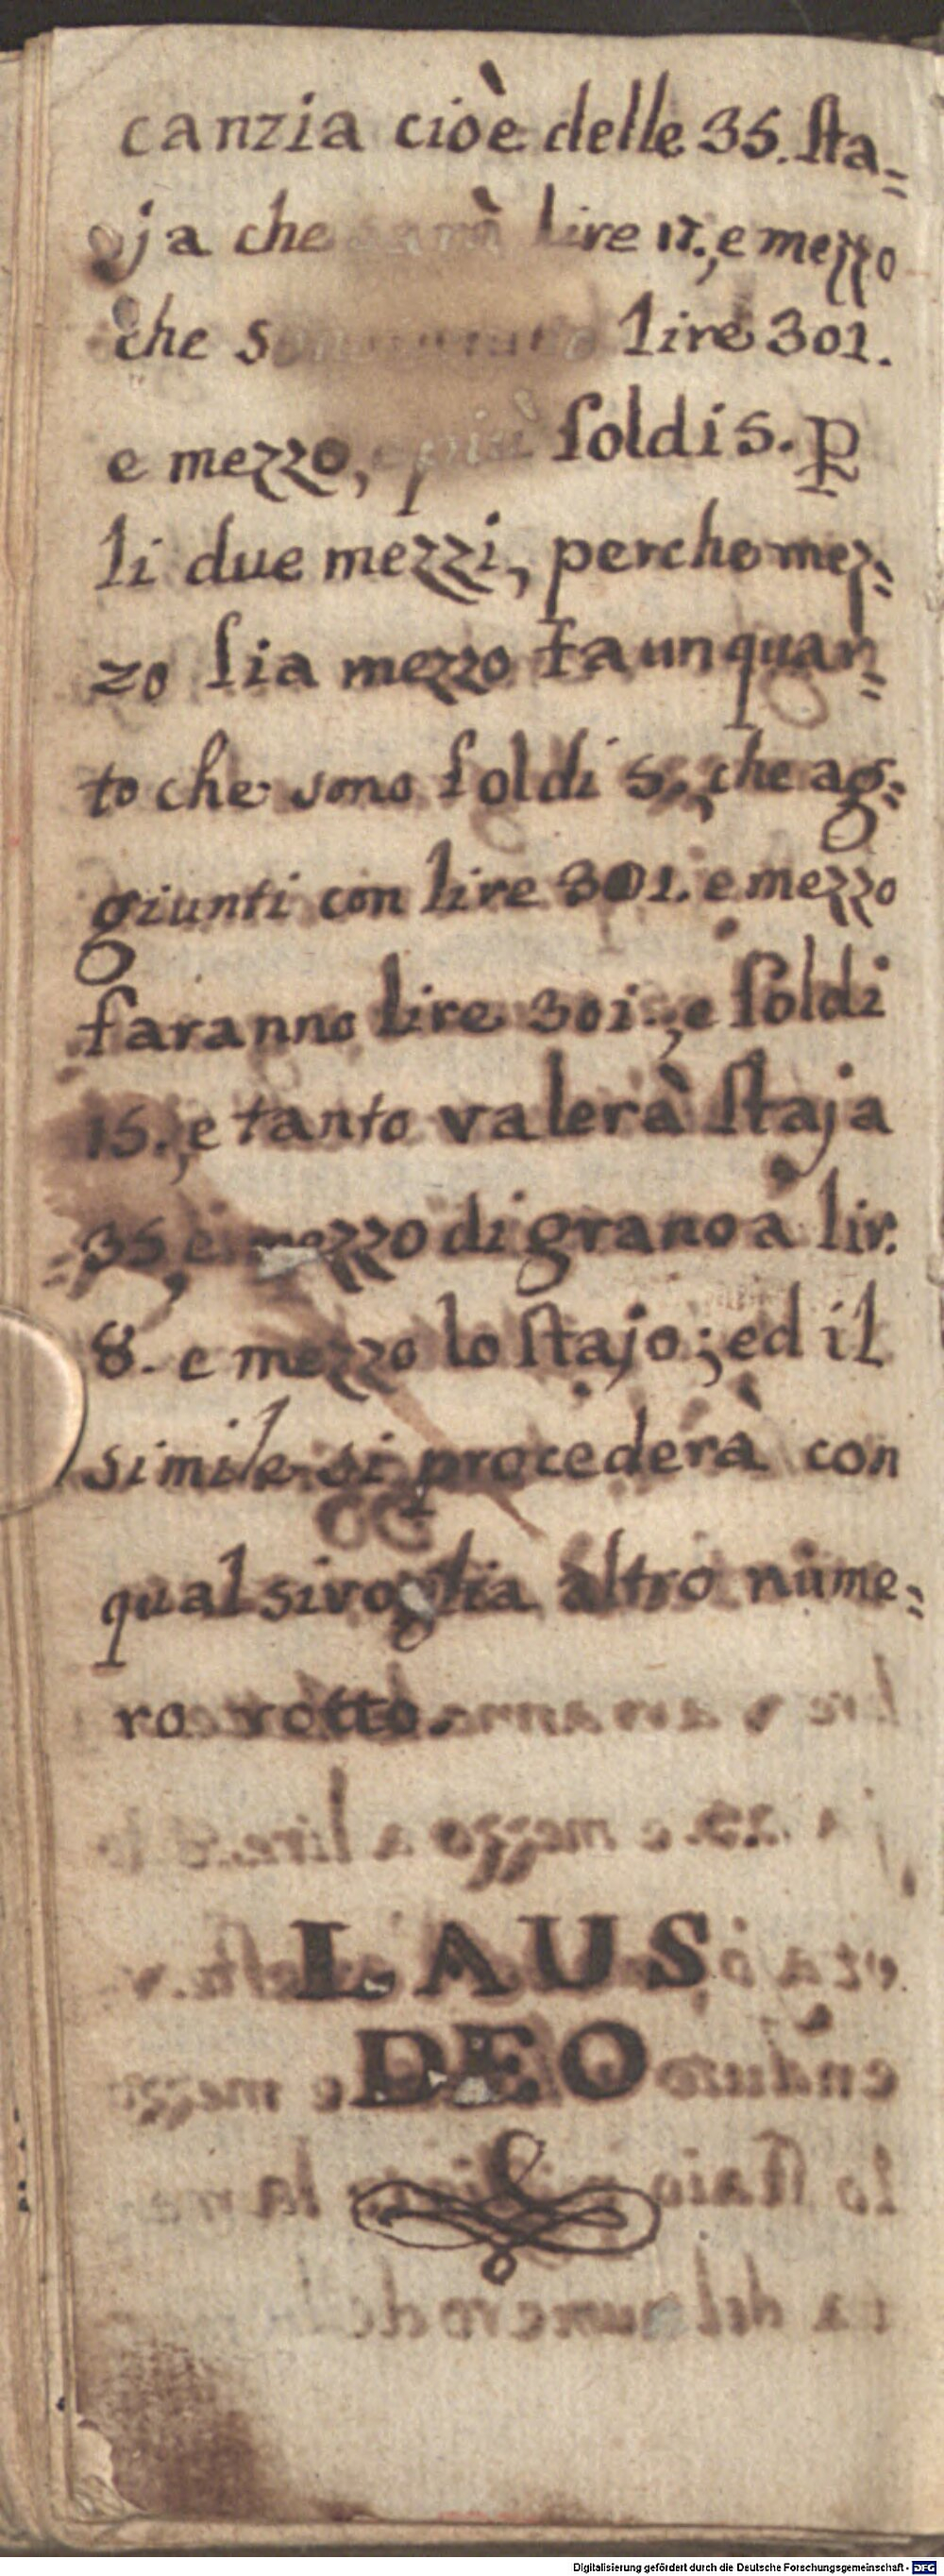 canzia cioè delle 35. sta=
ja che sarà lire 17., e mezzo
che sommerano lire 301.
e mezzo, e più soldi 5. p
li due mezzi, perche mez=
zo sia mezzo fa un quar=
to che sono soldi 5., che ag=
giunti con lire 301. e mezzo
faranno lire 301., e soldi
15., e tanto valerà staja
35, e mezzo di grano a lir.
8. e mezzo lo stajo; ed il
simile si procederà con
qualsivoglia altro nume=
ro rotto.
LAUS
DEO
Digitalisierung gefördert durch die Deutsche Forschungsgemeinschaft - DFG